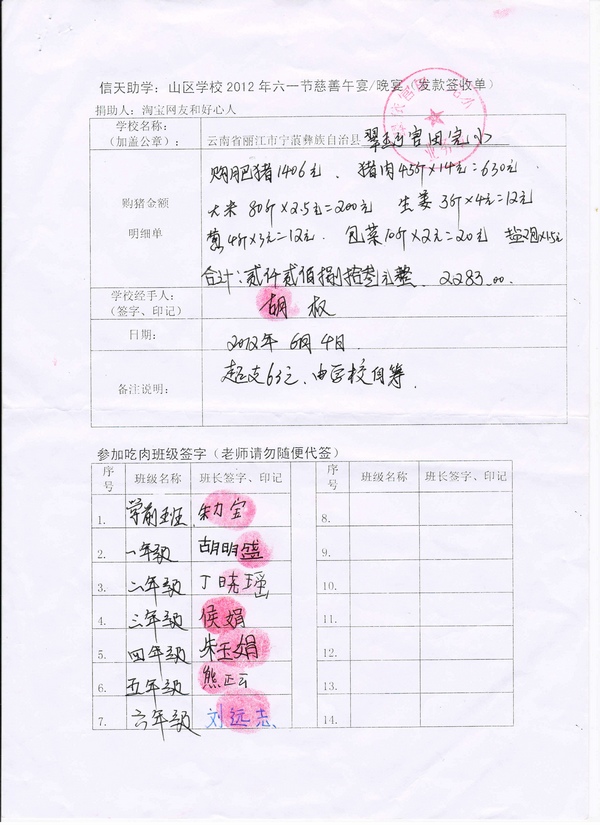 信天助学：山区学校2012年六一节慈善午宴/晚宴（发款签收单）
捐助人：淘宝网友和好心人
学校名称：
（加盖公章）：
云南省丽江市宁蒗彝族自治县 翠玉官田完小
购猪金额
明细单
购肥猪1406元、猪肉45斤×14元=630元
大米80斤×2.5元=200元 生姜3斤×4元=12元
葱4斤×3元=12元. 包菜10斤×2元=20元 盐2包×1.5元
合计：贰仟贰佰捌拾叁元整. 2283.00.
学校经手人：
（签字、印记）
胡权
日期：
2012年6月4日.
备注说明：
超支63元、由学校自筹.
参加吃肉班级签字（老师请勿随便代签）
序号 班级名称 班长签字、印记 序号 班级名称 班长签字、印记
1. 学前班 朱力宝 8.
2. 一年级 胡明盛 9.
3. 二年级 丁晓瑶 10.
4. 三年级 侯娟 11.
5. 四年级 朱玉娟 12.
6. 五年级 熊正云 13.
7. 六年级 刘远志 14.